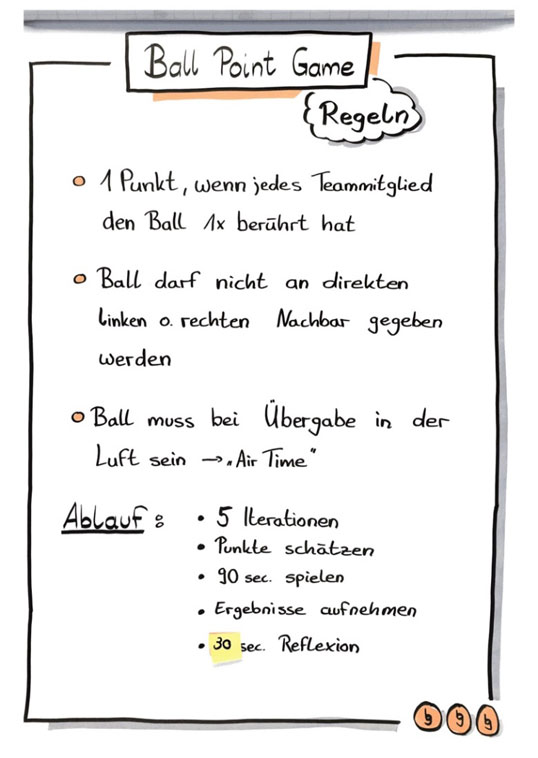 Ball Point Game
Regeln
1 Punkt, wenn jedes Teammitglied
den Ball 1x berührt hat
Ball darf nicht an direkten
linken o. rechten Nachbar gegeben
werden
Ball muss bei Übergabe in der
Luft sein → „Air Time"
Ablauf:
• 5 Iterationen
• Punkte schätzen
• 90 sec. spielen
• Ergebnisse aufnehmen
• 30 sec. Reflexion